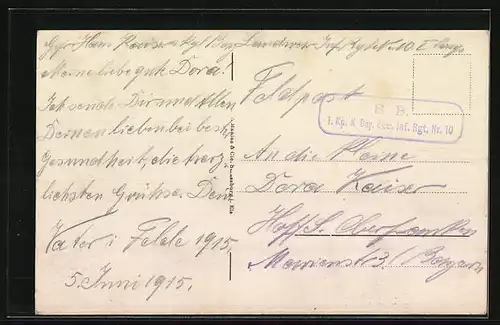 Gfr Hans Kaiser kgl Bay Landwehr Inf Rgt Nr. 10 I Komp
Meine liebe gute Dora!
Ich sende Dir und Allen
Deinen lieben bei bester
Gesundheit, die herz-
lichsten Grüße. Dein
Vater i Felde 1915.
5 Juni 1915.
Feldpost
S. B.
1. Kp. K. Bay. Inf. Rgt. Nr. 10
An die Kleine
Dora Kaiser
Hof/S. Oberfranken
Marienstr 3. / Bayern